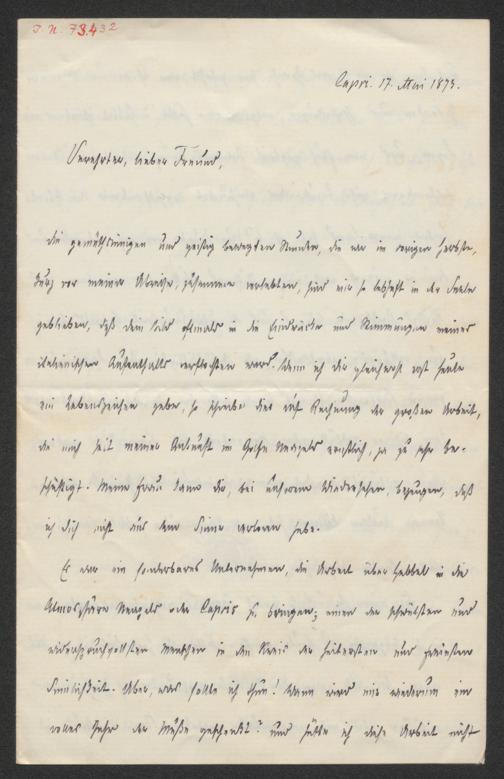 J. N. 73.432
Capri. 17. Mai 1873.
Verehrter, lieber Freund,
die gemüthsinnigen und geistig bewegten Stunden, die wir im vorigen Herbste,
kurz vor meiner Abreise, zusammen verlebten, sind mir so lebhaft in der Seele
geblieben, daß dein Bild oftmals in die Eindrücke und Stimmungen meines
italienischen Aufenthalts verflochten ward. Wenn ich dir gleichwohl erst heute
ein Lebenszeichen gebe, so schreibe dies auf Rechnung der großen Arbeit,
die mich seit meiner Ankunft im Golfe Neapels reichlich, ja zu sehr be-
schäftigt. Meine Frau kann dir, bei unserem Wiedersehen, bezeugen, daß
ich dich nicht aus dem Sinne verloren habe.
Es war ein sonderbares Unternehmen, die Arbeit über Hebbel in die
Atmosphäre Neapels oder Capris zu bringen; einen der schwülsten und
widerspruchvollsten Menschen in den Kreis der heitersten und freiesten
Sinnlichkeit. Aber, was sollte ich thun! Wann wird mir wiederum ein
volles Jahr der Muße geschenkt? und hätte ich diese Arbeit nicht